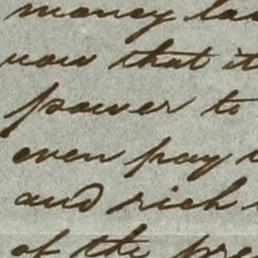 money
now that it
power to
even pay
and rich
of the pre